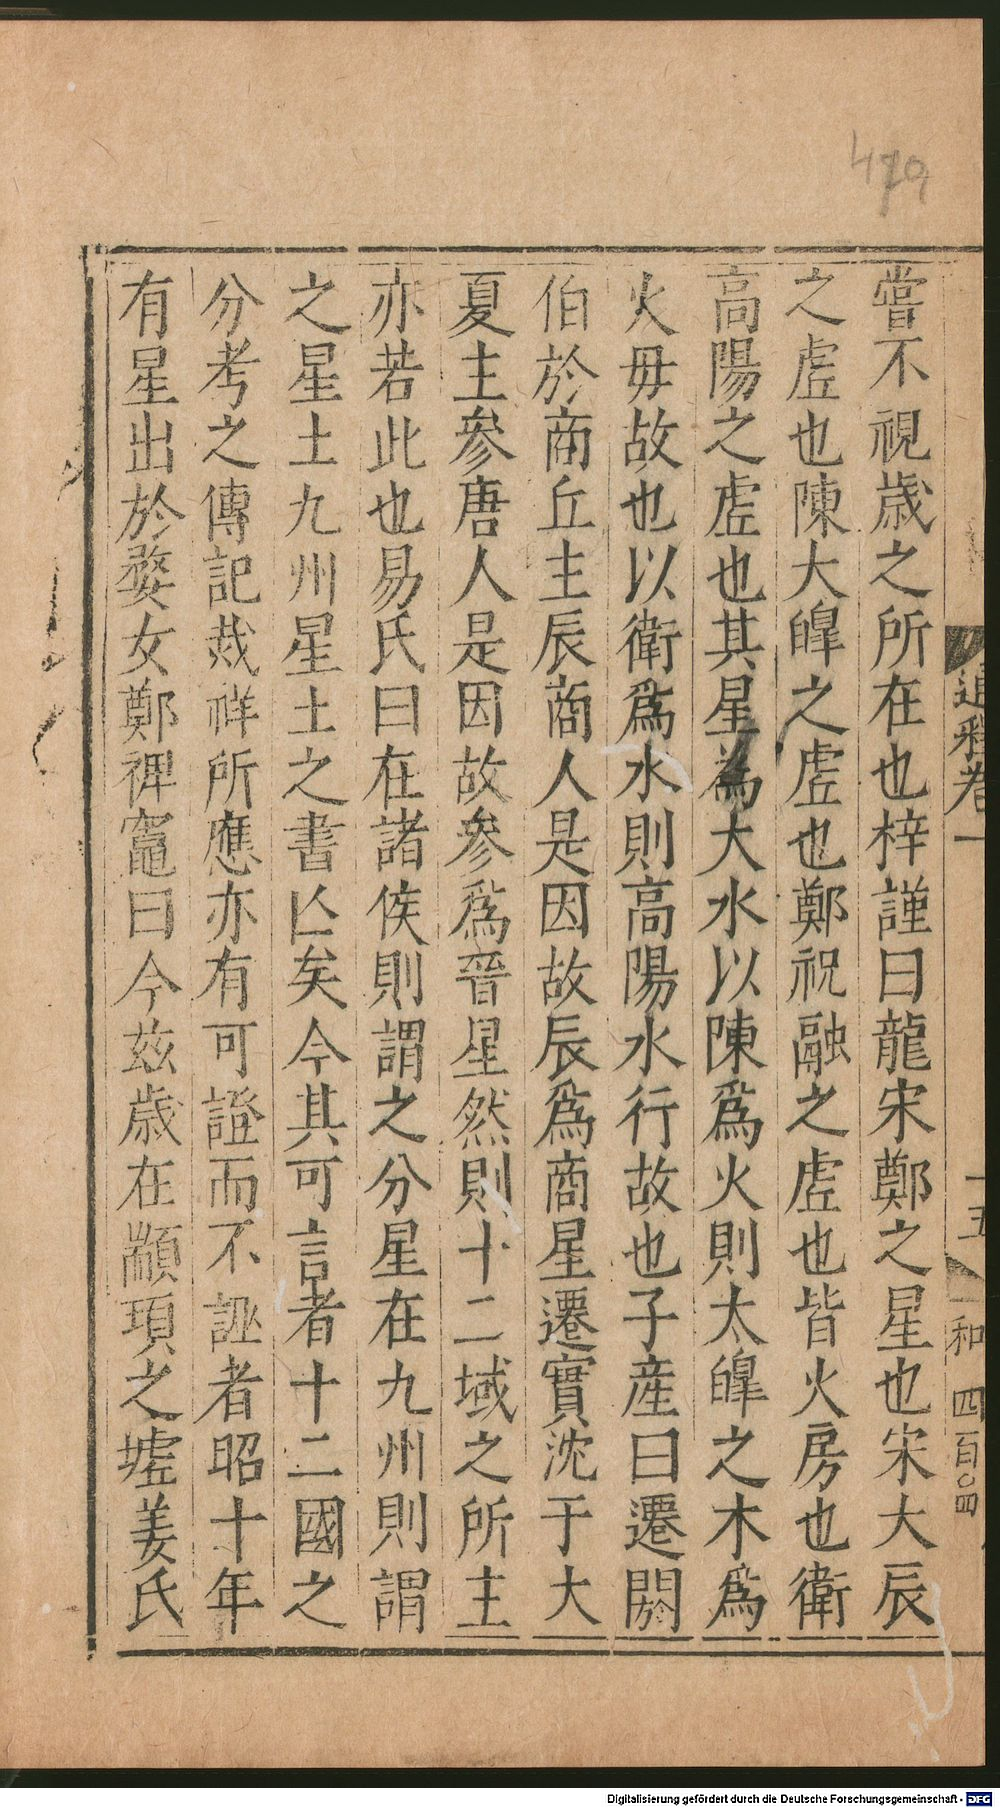 479
嘗不視歳之所在也梓謹曰龍宋鄭之星也宋大辰
之虗也陳大皥之虗也鄭祝融之虗也皆火房也衛
高陽之虗也其星為大水以陳爲火則太皥之木爲
火毋故也以衛爲水則高陽水行故也子産曰遷閼
伯於商丘主辰商人是因故辰爲商星遷實沈于大
夏主參唐人是因故參爲晉星然則十二域之所主
亦若此也易氏曰在諸侯則謂之分星在九州則謂
之星土九州星土之書亾矣今其可言者十二國之
分考之傳記烖祥所應亦有可證而不誣者昭十年
有星出於婺女鄭禆竈曰今玆歳在顓頊之墟姜氏
通釋卷一
十五
和 四百〇四
Digitalisierung gefördert durch die Deutsche Forschungsgemeinschaft - DFG